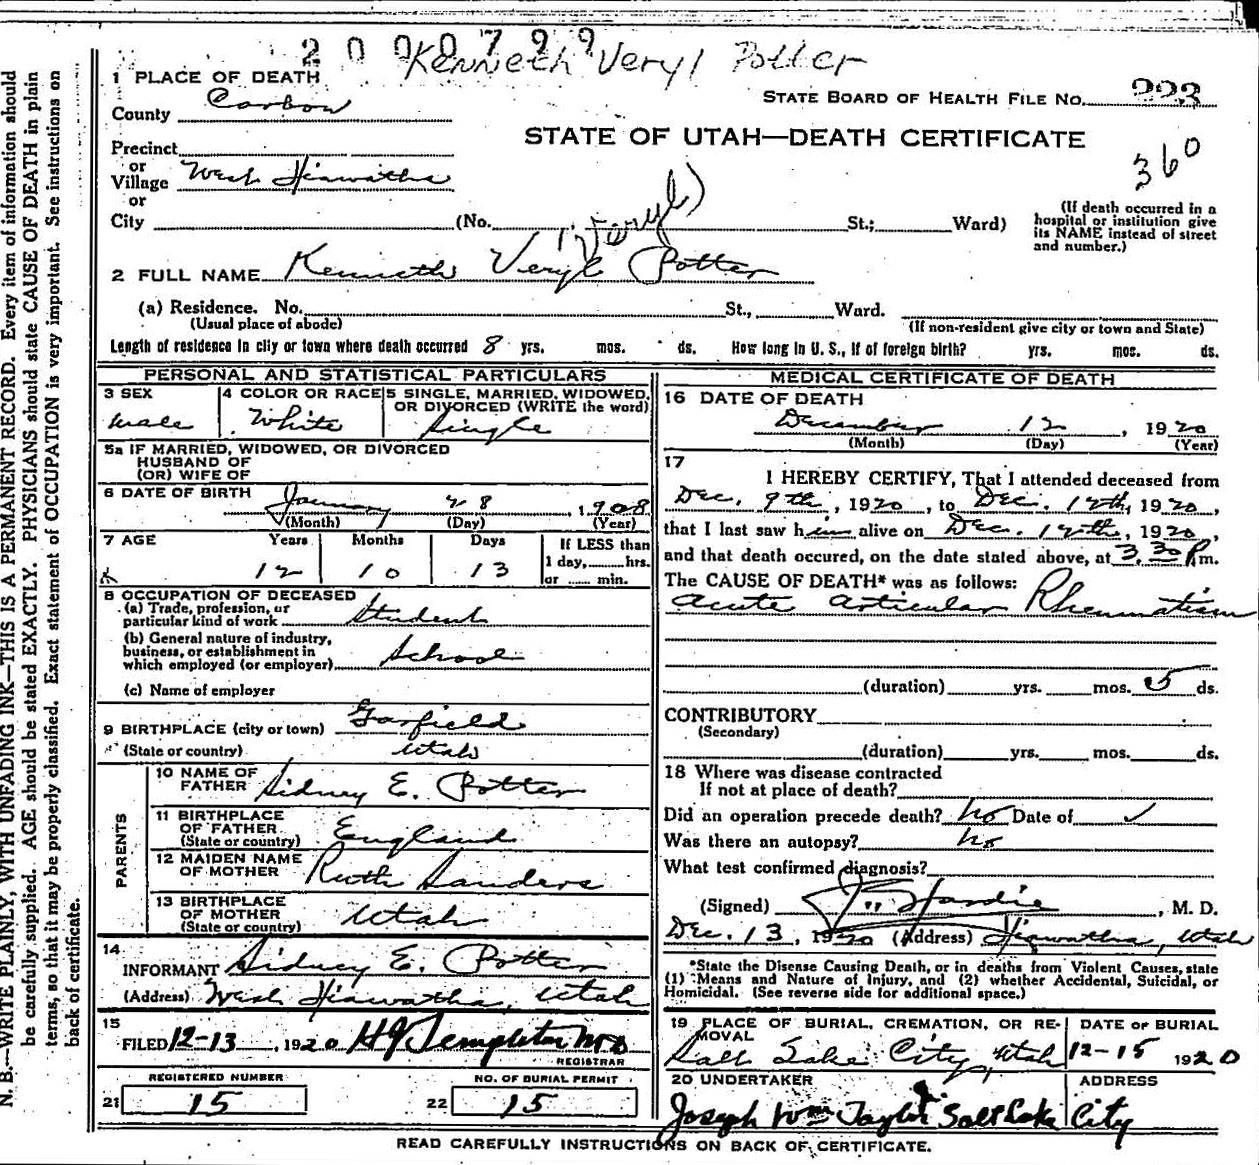 2000799
Kenneth Veryl Potter
1 PLACE OF DEATH
County Carbon
STATE BOARD OF HEALTH FILE No. 223
STATE OF UTAH—DEATH CERTIFICATE
360
Precinct
or
Village West Hiawatha
or
City (No. St.; Ward)
(If death occurred in a hospital or institution give its NAME instead of street and number.)
(Veryl)
2 FULL NAME Kenneth Veryl Potter
(a) Residence. No. St., Ward.
(Usual place of abode) (If non-resident give city or town and State)
Length of residence in city or town where death occurred 8 yrs. mos. ds. How long in U. S., if of foreign birth? yrs. mos. ds.
PERSONAL AND STATISTICAL PARTICULARS
3 SEX 4 COLOR OR RACE 5 SINGLE, MARRIED, WIDOWED, OR DIVORCED (WRITE the word)
Male White Single
5a IF MARRIED, WIDOWED, OR DIVORCED
HUSBAND OF
(OR) WIFE OF
6 DATE OF BIRTH January 28, 1908
(Month) (Day) (Year)
7 AGE Years Months Days If LESS than
1 day, hrs.
12 10 13 or min.
8 OCCUPATION OF DECEASED
(a) Trade, profession, or
particular kind of work Student
(b) General nature of industry,
business, or establishment in
which employed (or employer) School
(c) Name of employer
9 BIRTHPLACE (city or town) Garfield
(State or country) Utah
PARENTS
10 NAME OF
FATHER Sidney E. Potter
11 BIRTHPLACE
OF FATHER
(State or country) England
12 MAIDEN NAME
OF MOTHER Ruth Sanders
13 BIRTHPLACE
OF MOTHER
(State or country) Utah
14
INFORMANT Sidney E. Potter
(Address) West Hiawatha, Utah
15
FILED 12-13, 1920 H J Templeton MD
REGISTRAR
REGISTERED NUMBER NO. OF BURIAL PERMIT
21 15 22 15
MEDICAL CERTIFICATE OF DEATH
16 DATE OF DEATH
December 12, 1920
(Month) (Day) (Year)
17
I HEREBY CERTIFY, That I attended deceased from
Dec. 9th, 1920, to Dec. 12th, 1920,
that I last saw him alive on Dec. 12th, 1920,
and that death occured, on the date stated above, at 3.30 P.m.
The CAUSE OF DEATH* was as follows:
Acute Articular Rheumatism
(duration) yrs. mos. 5 ds.
CONTRIBUTORY
(Secondary)
(duration) yrs. mos. ds.
18 Where was disease contracted
If not at place of death?
Did an operation precede death? No Date of ✓
Was there an autopsy? No
What test confirmed diagnosis?
(Signed) Hardie, M. D.
Dec. 13, 1920 (Address) Hiawatha, Utah
*State the Disease Causing Death, or in deaths from Violent Causes, state
(1) Means and Nature of Injury, and (2) whether Accidental, Suicidal, or
Homicidal. (See reverse side for additional space.)
19 PLACE OF BURIAL, CREMATION, OR REMOVAL DATE OF BURIAL
Salt Lake City, Utah 12-15 1920
20 UNDERTAKER ADDRESS
Joseph Wm Taylor Salt Lake City
READ CAREFULLY INSTRUCTIONS ON BACK OF CERTIFICATE.
N. B.—WRITE PLAINLY, WITH UNFADING INK—THIS IS A PERMANENT RECORD. Every item of information should
be carefully supplied. AGE should be stated EXACTLY. PHYSICIANS should state CAUSE OF DEATH in plain
terms, so that it may be properly classified. Exact statement of OCCUPATION is very important. See instructions on
back of certificate.